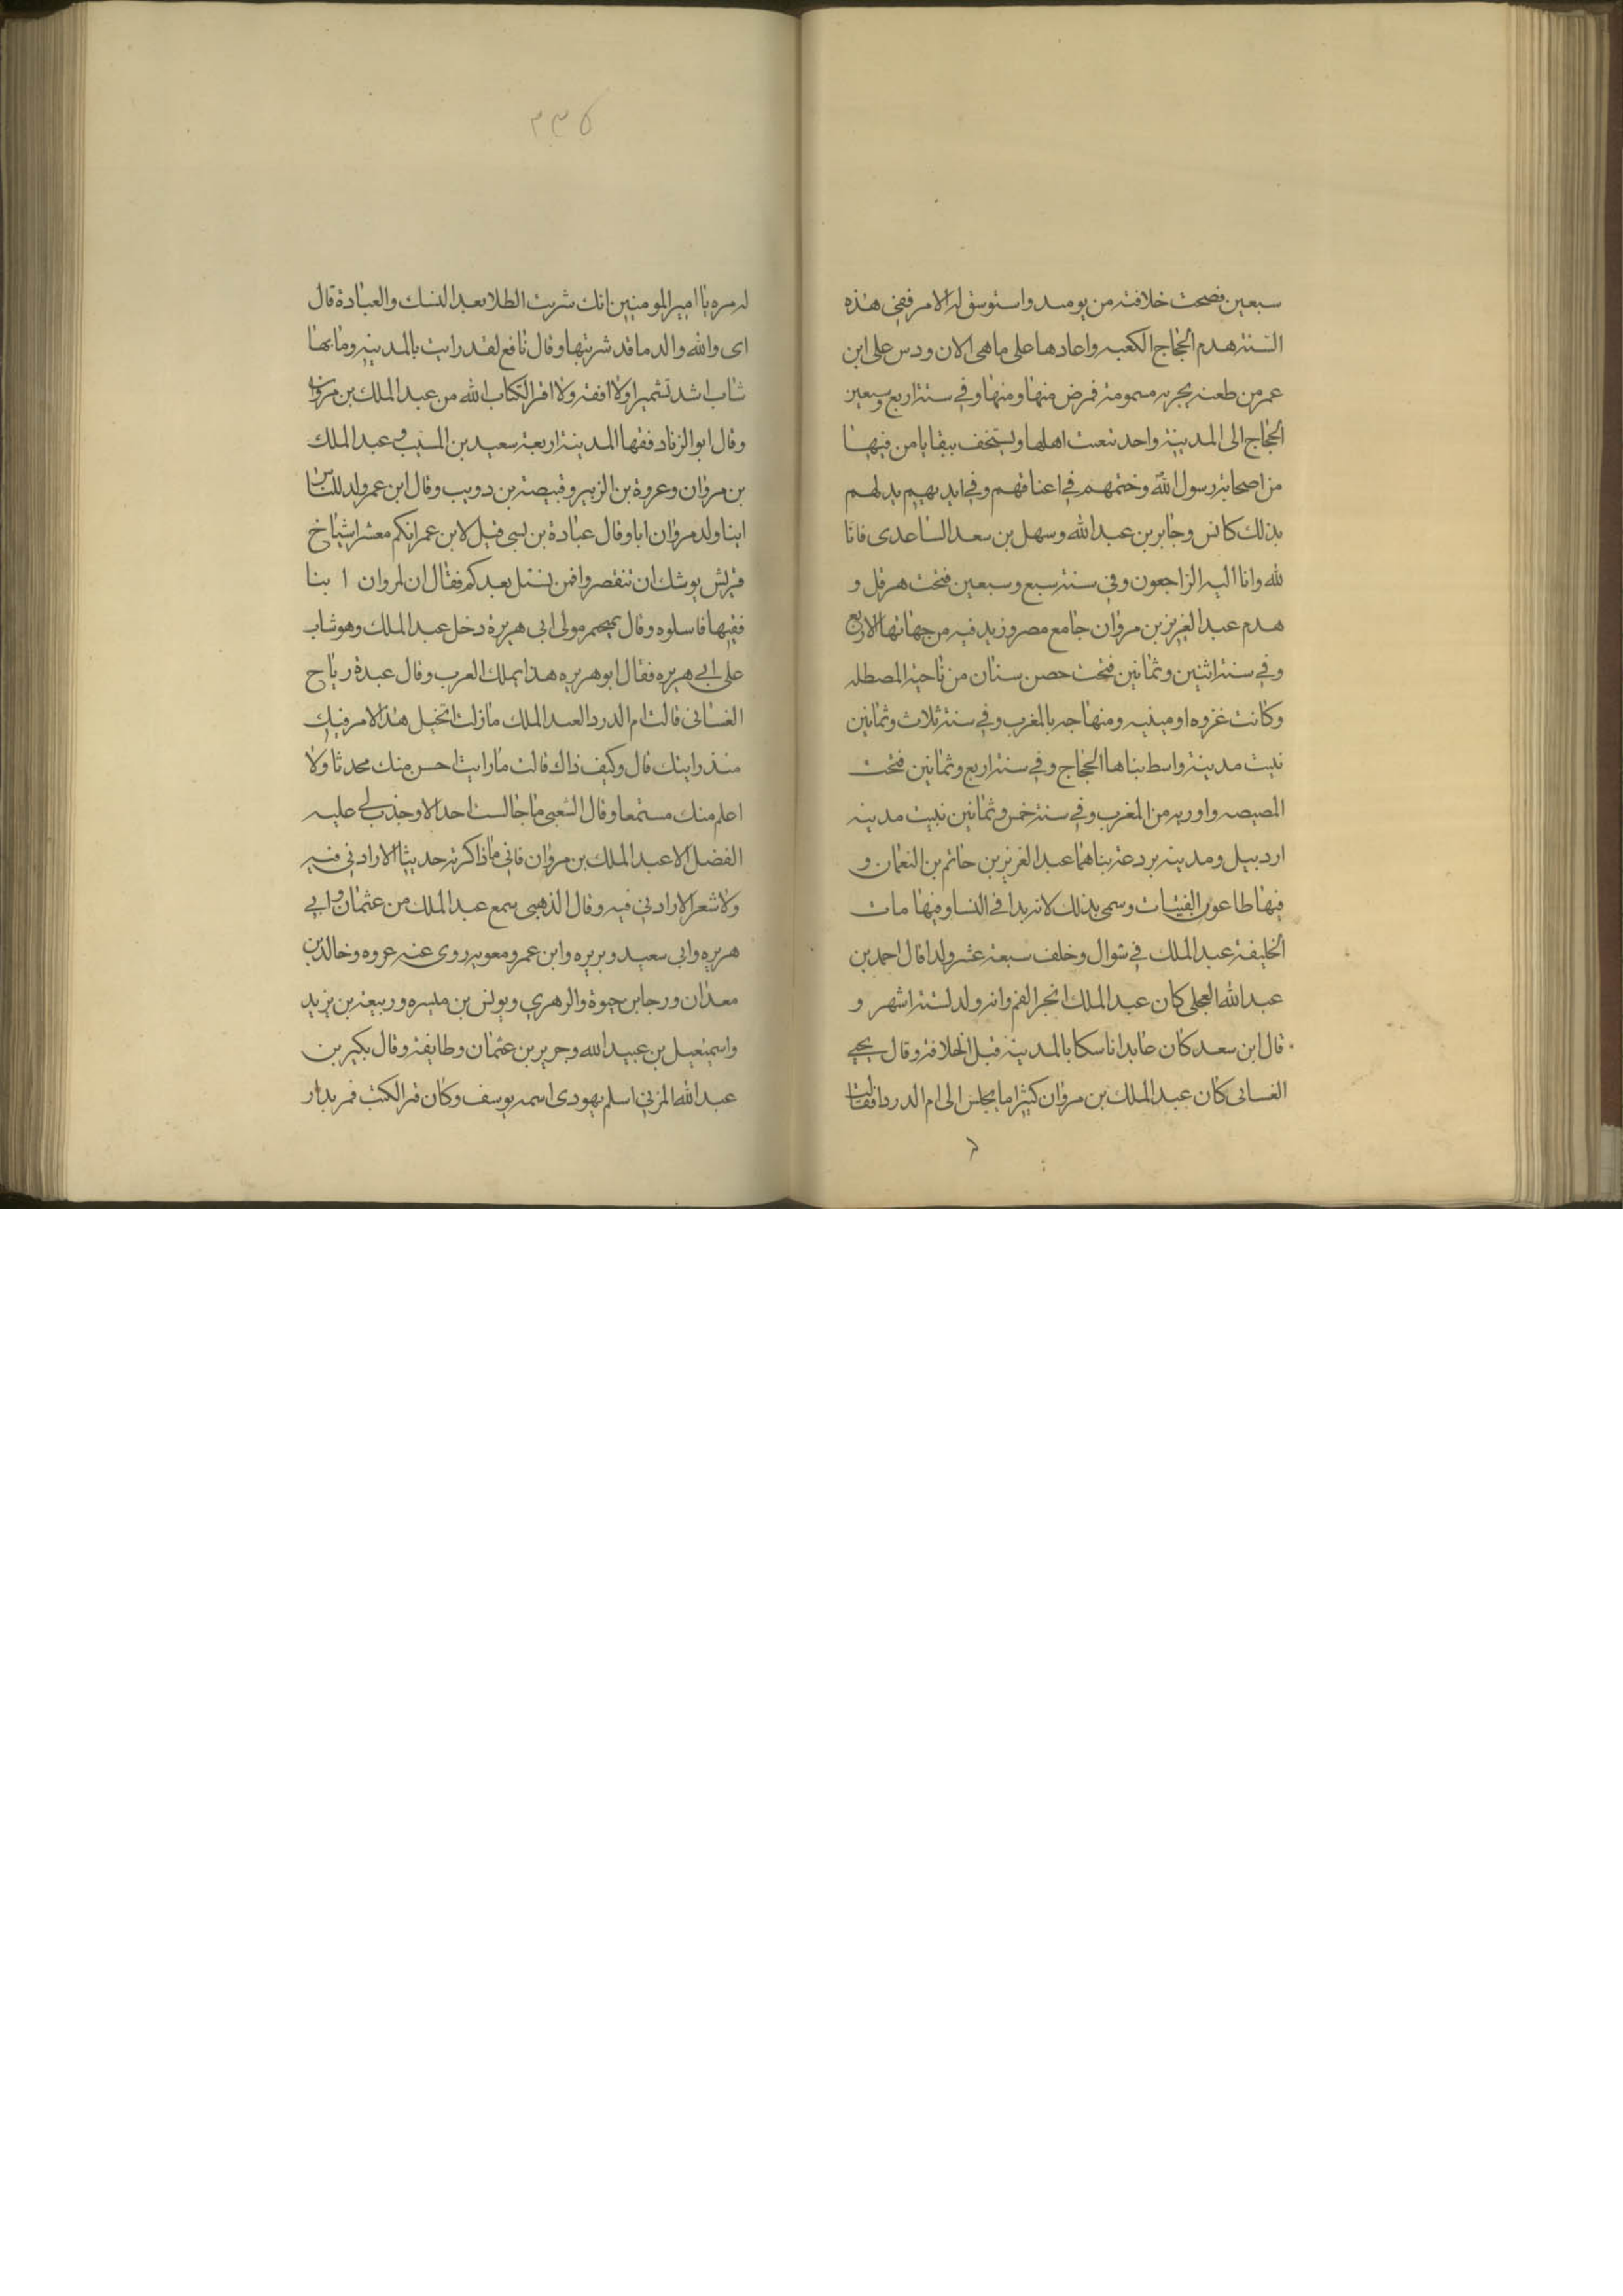 سبعين فصحت خلافته من يومىد واستوسق له الامر ففي هذه
السنة هدم الحجاج الكعبه واعادها على ماهى الان ودس على ابن
عمر من طعنه بحربه مسمومة فمرض منها ومنها وفي سنة اربع وسبعين
الحجاج الى المدينة واحد تعنت اهلها ويستخف ببقايا من فيها
من اصحابة رسول الله وختمهم في اعناقهم وفي ايديهم يدلهم
بذلك كانس وجابر بن عبد الله وسهل بن سعد الساعدى فانا
لله وانا اليه الراجعون وفي سنة سبع وسبعين فتحت هرقل و
هدم عبد العزيز بن مروان جامع مصر وزيد فيه من جهاتها الاربع
وفي سنة اثنين وثمانين فتحت حصن سنان من ناحية المصطله
وكانت غزوه اومينيه ومنهاجه بالمغرب وفي سنة ثلاث وثمانين
بنيت مدينة واسط بناها الحجاج وفي سنة اربع وثمانين فتحت
المصيصه واوربه من المغرب وفي سنة خمس وثمانين بنيت مدينه
اردبيل ومدينه بردعة بناهما عبد العزيز بن حاتم بن النعمان و
فيها طاعون الفتيات وسمى بذلك لانه بدا في النسا وفيها مات
الخليفة عبد الملك في شوال وخلف سبعة عشر ولدا قال احمد بن
عبد الله العجلى كان عبد الملك انجر الفم وانه ولد لستة اشهر و
قال ابن سعد كان عابدا ناسكا بالمدينه قبل الخلافة وقال يحيى
الغسانى كان عبد الملك بن مروان كثيرا ما يجلس الى ام الدرداء فقالت
٢٣٥
له مره يا امير المومنين انك شربت الطلا بعد النسك والعبادة قال
اى والله والدما قد شربتها وقال نافع لقد رايت بالمدينه وما بها
شاب اشد تشميرا ولا افقه ولا اقرا لكتاب الله من عبد الملك بن مروان
وقال ابو الزناد فقها المدينة اربعة سعيد بن المسيب وعبد الملك
بن مروان وعروة بن الزبير وقبيصة بن دويب وقال ابن عمر ولد للناس
ابنا ولد مروان ابا وقال عبادة بن لسى قيل لابن عمر انكم معشر اشياخ
قريش يوشك ان تنقصروا فمن نسئل بعدكم فقال ان لمروان ا بنا
فقيها فاسلوه وقال سحيم مولى ابى هريرة دخل عبد الملك وهو شاب
على ابي هريره فقال ابو هريره هذا يملك العرب وقال عبدة رياح
الغسانى قالت ام الدردا لعبد الملك ما زلت اتخيل هذا الامر فيك
منذ رايتك قال وكيف ذاك قالت ما رايت احسن منك محدثا ولا
اعلم منك مستمعا وقال الشعبى ما جالست احدا الا وجدت لي عليه
الفضل الا عبد الملك بن مروان فاني ما ذاكرته حديثا الا زادني فيه
ولا شعرا الا زادني فيه وقال الذهبى سمع عبد الملك من عثمان وابي
هريره وابى سعيد وبريره وابن عمر ومعويه روى عنه عروه وخالد بن
معدان ورجا بن حيوة والزهري ويونس بن ميسره وربيعة بن يزيد
واسمعيل بن عبيد الله وجرير بن عثمان وطايفة وقال بكير بن
عبد الله المزني اسلم يهودى اسمه يوسف وكان قرا الكتب فمر بدار